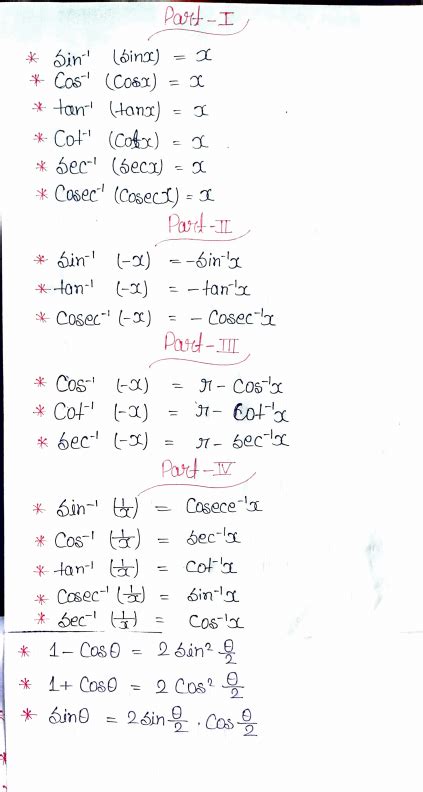 Part-I
* Sin⁻¹ (Sinx) = x
* Cos⁻¹ (Cosx) = x
* tan⁻¹ (tanx) = x
* Cot⁻¹ (Cotx) = x
* Sec⁻¹ (Secx) = x
* Cosec⁻¹ (Cosecx) = x
Part-II
* Sin⁻¹ (-x) = -Sin⁻¹x
* tan⁻¹ (-x) = -tan⁻¹x
* Cosec⁻¹ (-x) = -Cosec⁻¹x
Part-III
* Cos⁻¹ (-x) = π - Cos⁻¹x
* Cot⁻¹ (-x) = π - Cot⁻¹x
* Sec⁻¹ (-x) = π - Sec⁻¹x
Part-IV
* Sin⁻¹ (1/x) = Cosece⁻¹x
* Cos⁻¹ (1/x) = Sec⁻¹x
* tan⁻¹ (1/x) = Cot⁻¹x
* Cosec⁻¹ (1/x) = Sin⁻¹x
* Sec⁻¹ (1/x) = Cos⁻¹x
* 1 - Cosθ = 2 Sin² θ/2
* 1 + Cosθ = 2 Cos² θ/2
* Sinθ = 2 Sin θ/2 . Cos θ/2